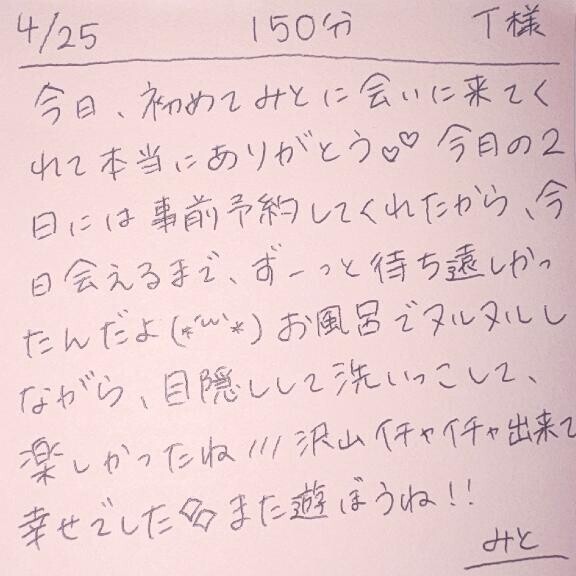 4/25 150分 T様
今日、初めてみとに会いに来てく
れて本当にありがとう♡♡ 今日の2
日には事前予約してくれたから、今
日会えるまで、ずーっと待ち遠しかっ
たんだよ(*´ω`*)お風呂でヌルヌルし
ながら、目隠しして洗いっこして、
楽しかったね///沢山イチャイチャ出来て
幸せでした また遊ぼうね!!
みと